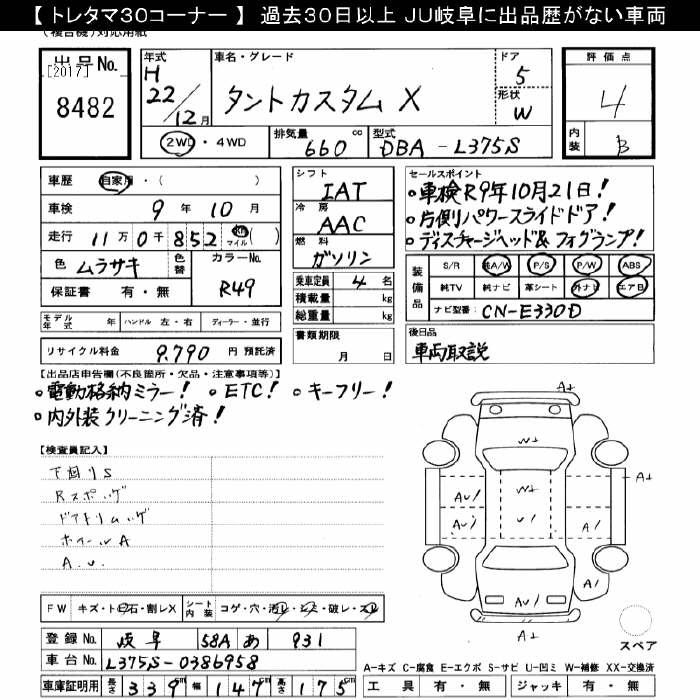 【トレタマ30コーナー】過去30日以上 JU岐阜に出品歴がない車両
(複合機)対応用紙
出品No. [2017] 8482
年式 H 22/12月
車名・グレード タントカスタム X
ドア 5
形状 W
評価点 4
内装 B
2WD・4WD
排気量 660 cc
型式 DBA-L375S
車歴 自家用・( )
車検 9年10月
走行 11万0千852 km マイル ( )
色 ムラサキ 色替 カラーNo. R49
保証書 有・無
モデル年式 年 ハンドル 左・右 ディーラー・並行
リサイクル料金 9,790 円 預託済
シフト IAT
冷房 AAC
燃料 ガソリン
乗車定員 4 名
積載量 kg
総重量 kg
書類期限 月 日
セールスポイント
。車検R9年10月21日!
。片側パワースライドドア!
。ディスチャージヘッド&フォグランプ!
装備品 S/R 純A/W P/S P/W ABS
純TV 純ナビ 革シート 外ナビ エアB
ナビ型番: CN-E330D
後日品 車両取説
【出品店申告欄(不良箇所・欠品・注意事項等)】
。電動格納ミラー! 。ETC! 。キーフリー!
。内外装クリーニング済!
【検査員記入】
下回りS
Rスポハゲ
ドアトリムハゲ
ホイールA
A.U.
FW キズ・トビ石・割レX シート内装 コゲ・穴・汚レ・シミ・破レ・スレ
登録No. 岐阜 58A あ 931
車台No. L375S-0386958
車庫証明用 長さ 339cm 幅 147cm 高さ 175cm
A+
W+
A+
AU/ W+
AU/ U/ A/
AU/ A/
A+
スペア
A-キズ C-腐食 E-エクボ S-サビ U-凹ミ W-補修 XX-交換済
工具 有・無 ジャッキ 有・無